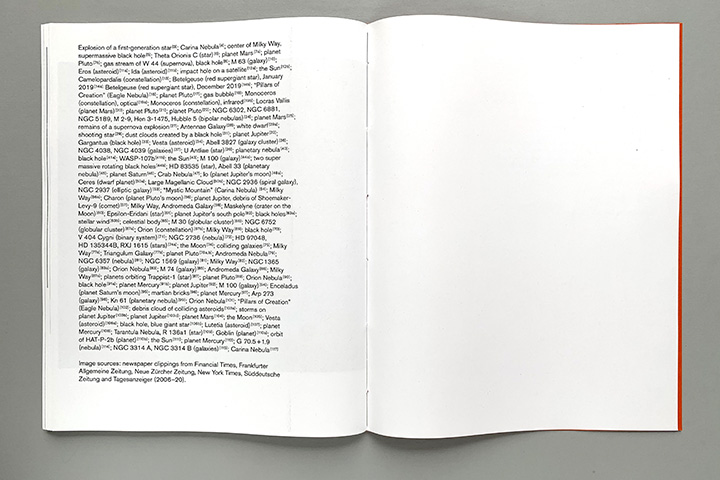 Explosion of a first-generation star; Carina Nebula; center of Milky Way,
supermassive black hole; Theta Orionis C (star); planet Mars; planet
Pluto; gas stream of W 44 (supernova), black hole; M 63 (galaxy);
Eros (asteroid); Ida (asteroid); impact hole on a satellite; the Sun;
Camelopardalis (constellation); Betelgeuse (red supergiant star), January
2019; Betelgeuse (red supergiant star), December 2019; "Pillars of
Creation" (Eagle Nebula); planet Pluto; gas bubble; Monoceros
(constellation), optical; Monoceros (constellation), infrared; Locras Vallis
(planet Mars); planet Pluto; planet Pluto; NGC 6302, NGC 6881,
NGC 5189, M 2-9, Hen 3-1475, Hubble 5 (bipolar nebulas); planet Mars;
remains of a supernova explosion; Antennae Galaxy; white dwarf;
shooting star; dust clouds created by a black hole; planet Jupiter;
Gargantua (black hole); Vesta (asteroid); Abell 3827 (galaxy cluster);
NGC 4038, NGC 4039 (galaxies); U Antliae (star); planetary nebula;
black hole; WASP-107b; the Sun; M 100 (galaxy); two super
massive rotating black holes; HD 83535 (star), Abell 33 (planetary
nebula); planet Saturn; Crab Nebula; Io (planet Jupiter's moon);
Ceres (dwarf planet); Large Magellanic Cloud; NGC 2936 (spiral galaxy),
NGC 2937 (elliptic galaxy); "Mystic Mountain" (Carina Nebula); Milky
Way; Charon (planet Pluto's moon); planet Jupiter, debris of Shoemaker-
Levy-9 (comet); Milky Way, Andromeda Galaxy; Maskelyne (crater on the
Moon); Epsilon-Eridani (star); planet Jupiter's south pole; black holes;
stellar wind; celestial body; M 30 (globular cluster); NGC 6752
(globular cluster); Orion (constellation); Milky Way; black hole;
V 404 Cygni (binary system); NGC 2736 (nebula); HD 97048,
HD 135344B, RXJ 1615 (stars); the Moon; colliding galaxies; Milky
Way; Triangulum Galaxy; planet Pluto; Andromeda Nebula;
NGC 6357 (nebula); NGC 1569 (galaxy); Milky Way; NGC 1365
(galaxy); Orion Nebula; M 74 (galaxy); Andromeda Galaxy; Milky
Way; planets orbiting Trappist-1 (star); planet Pluto; Orion Nebula;
black hole; planet Mercury; planet Jupiter; M 100 (galaxy); Enceladus
(planet Saturn's moon); martian bricks; planet Mercury; Arp 273
(galaxy); Kn 61 (planetary nebula); Orion Nebula; "Pillars of Creation"
(Eagle Nebula); debris cloud of colliding asteroids; storms on
planet Jupiter; planet Jupiter; planet Mars; the Moon; Vesta
(asteroid); black hole, blue giant star; Lutetia (asteroid); planet
Mercury; Tarantula Nebula, R 136a1 (star); Goblin (planet); orbit
of HAT-P-2b (planet); the Sun; planet Mercury; G 70.5+1.9
(nebula); NGC 3314 A, NGC 3314 B (galaxies); Carina Nebula
Image sources: newspaper clippings from Financial Times, Frankfurter
Allgemeine Zeitung, Neue Zürcher Zeitung, New York Times, Süddeutsche
Zeitung and Tagesanzeiger (2006–20).